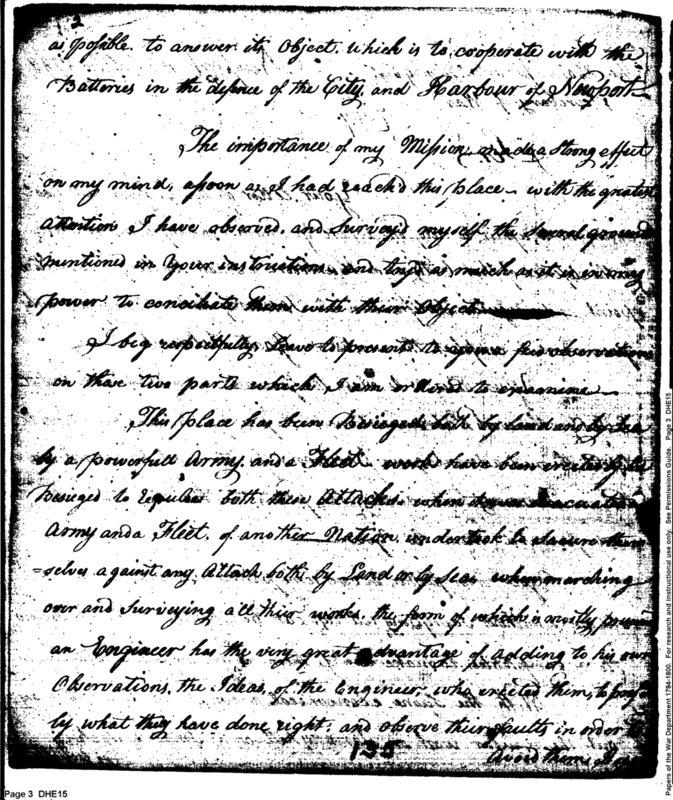 2
as possible. to answer its Object. which is to cooperate with the
Batteries in the defence of the City and Harbour of Newport—
The importance of my Mission made a Strong effect
on my mind, assoon as I had reach'd this place — with the greatest
attention I have observed. and Survey'd myself the Several ground
mentioned in Your instructions and try'd as much as it is in my
power to conciliate them with their Object
I beg respectfully Leave to present to you a few observations
on those two parts which I am ordered to examine—
This place has been Besieged both by Land and by Sea
by a powerfull Army. and a Fleet. work have been erected by the
Besieged to repulse both these Attacks. when
Army and a Fleet. of another Nation undertook to Secure them
=selves against any Attack both by Land or by Sea. when marching
over and Surveying all their works. the form of which is mostly
an Engineer has the very great advantage of adding to his own
Observations, the Ideas, of the Engineer who erected them, to
by what they have done right. and observe their faults in order to
Avoid them.
135
Page 3 DHE15
Papers of the War Department 1784-1800. For research and instructional use only. See Permissions Guide. Page 3 DHE15